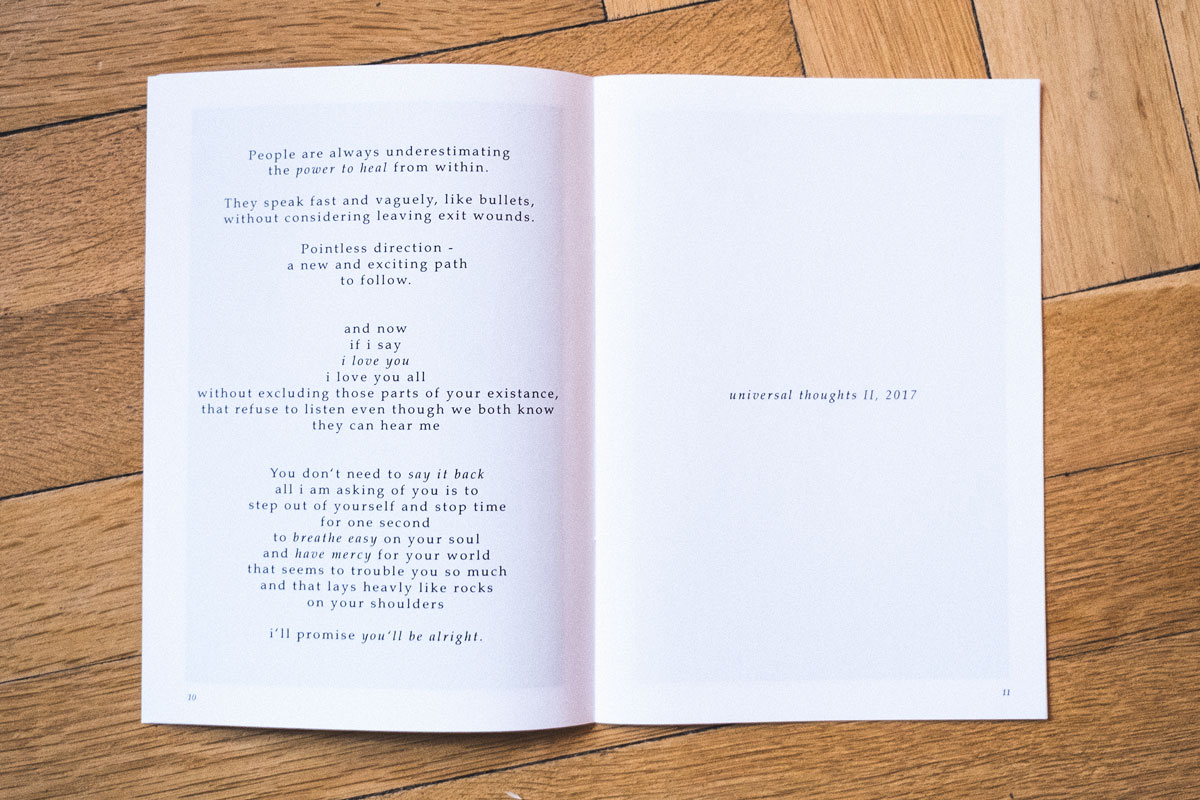 People are always underestimating
the power to heal from within.
They speak fast and vaguely, like bullets,
without considering leaving exit wounds.
Pointless direction -
a new and exciting path
to follow.
and now
if i say
i love you
i love you all
without excluding those parts of your existance,
that refuse to listen even though we both know
they can hear me
You don't need to say it back
all i am asking of you is to
step out of yourself and stop time
for one second
to breathe easy on your soul
and have mercy for your world
that seems to trouble you so much
and that lays heavly like rocks
on your shoulders
i'll promise you'll be alright.
10
universal thoughts II, 2017
11